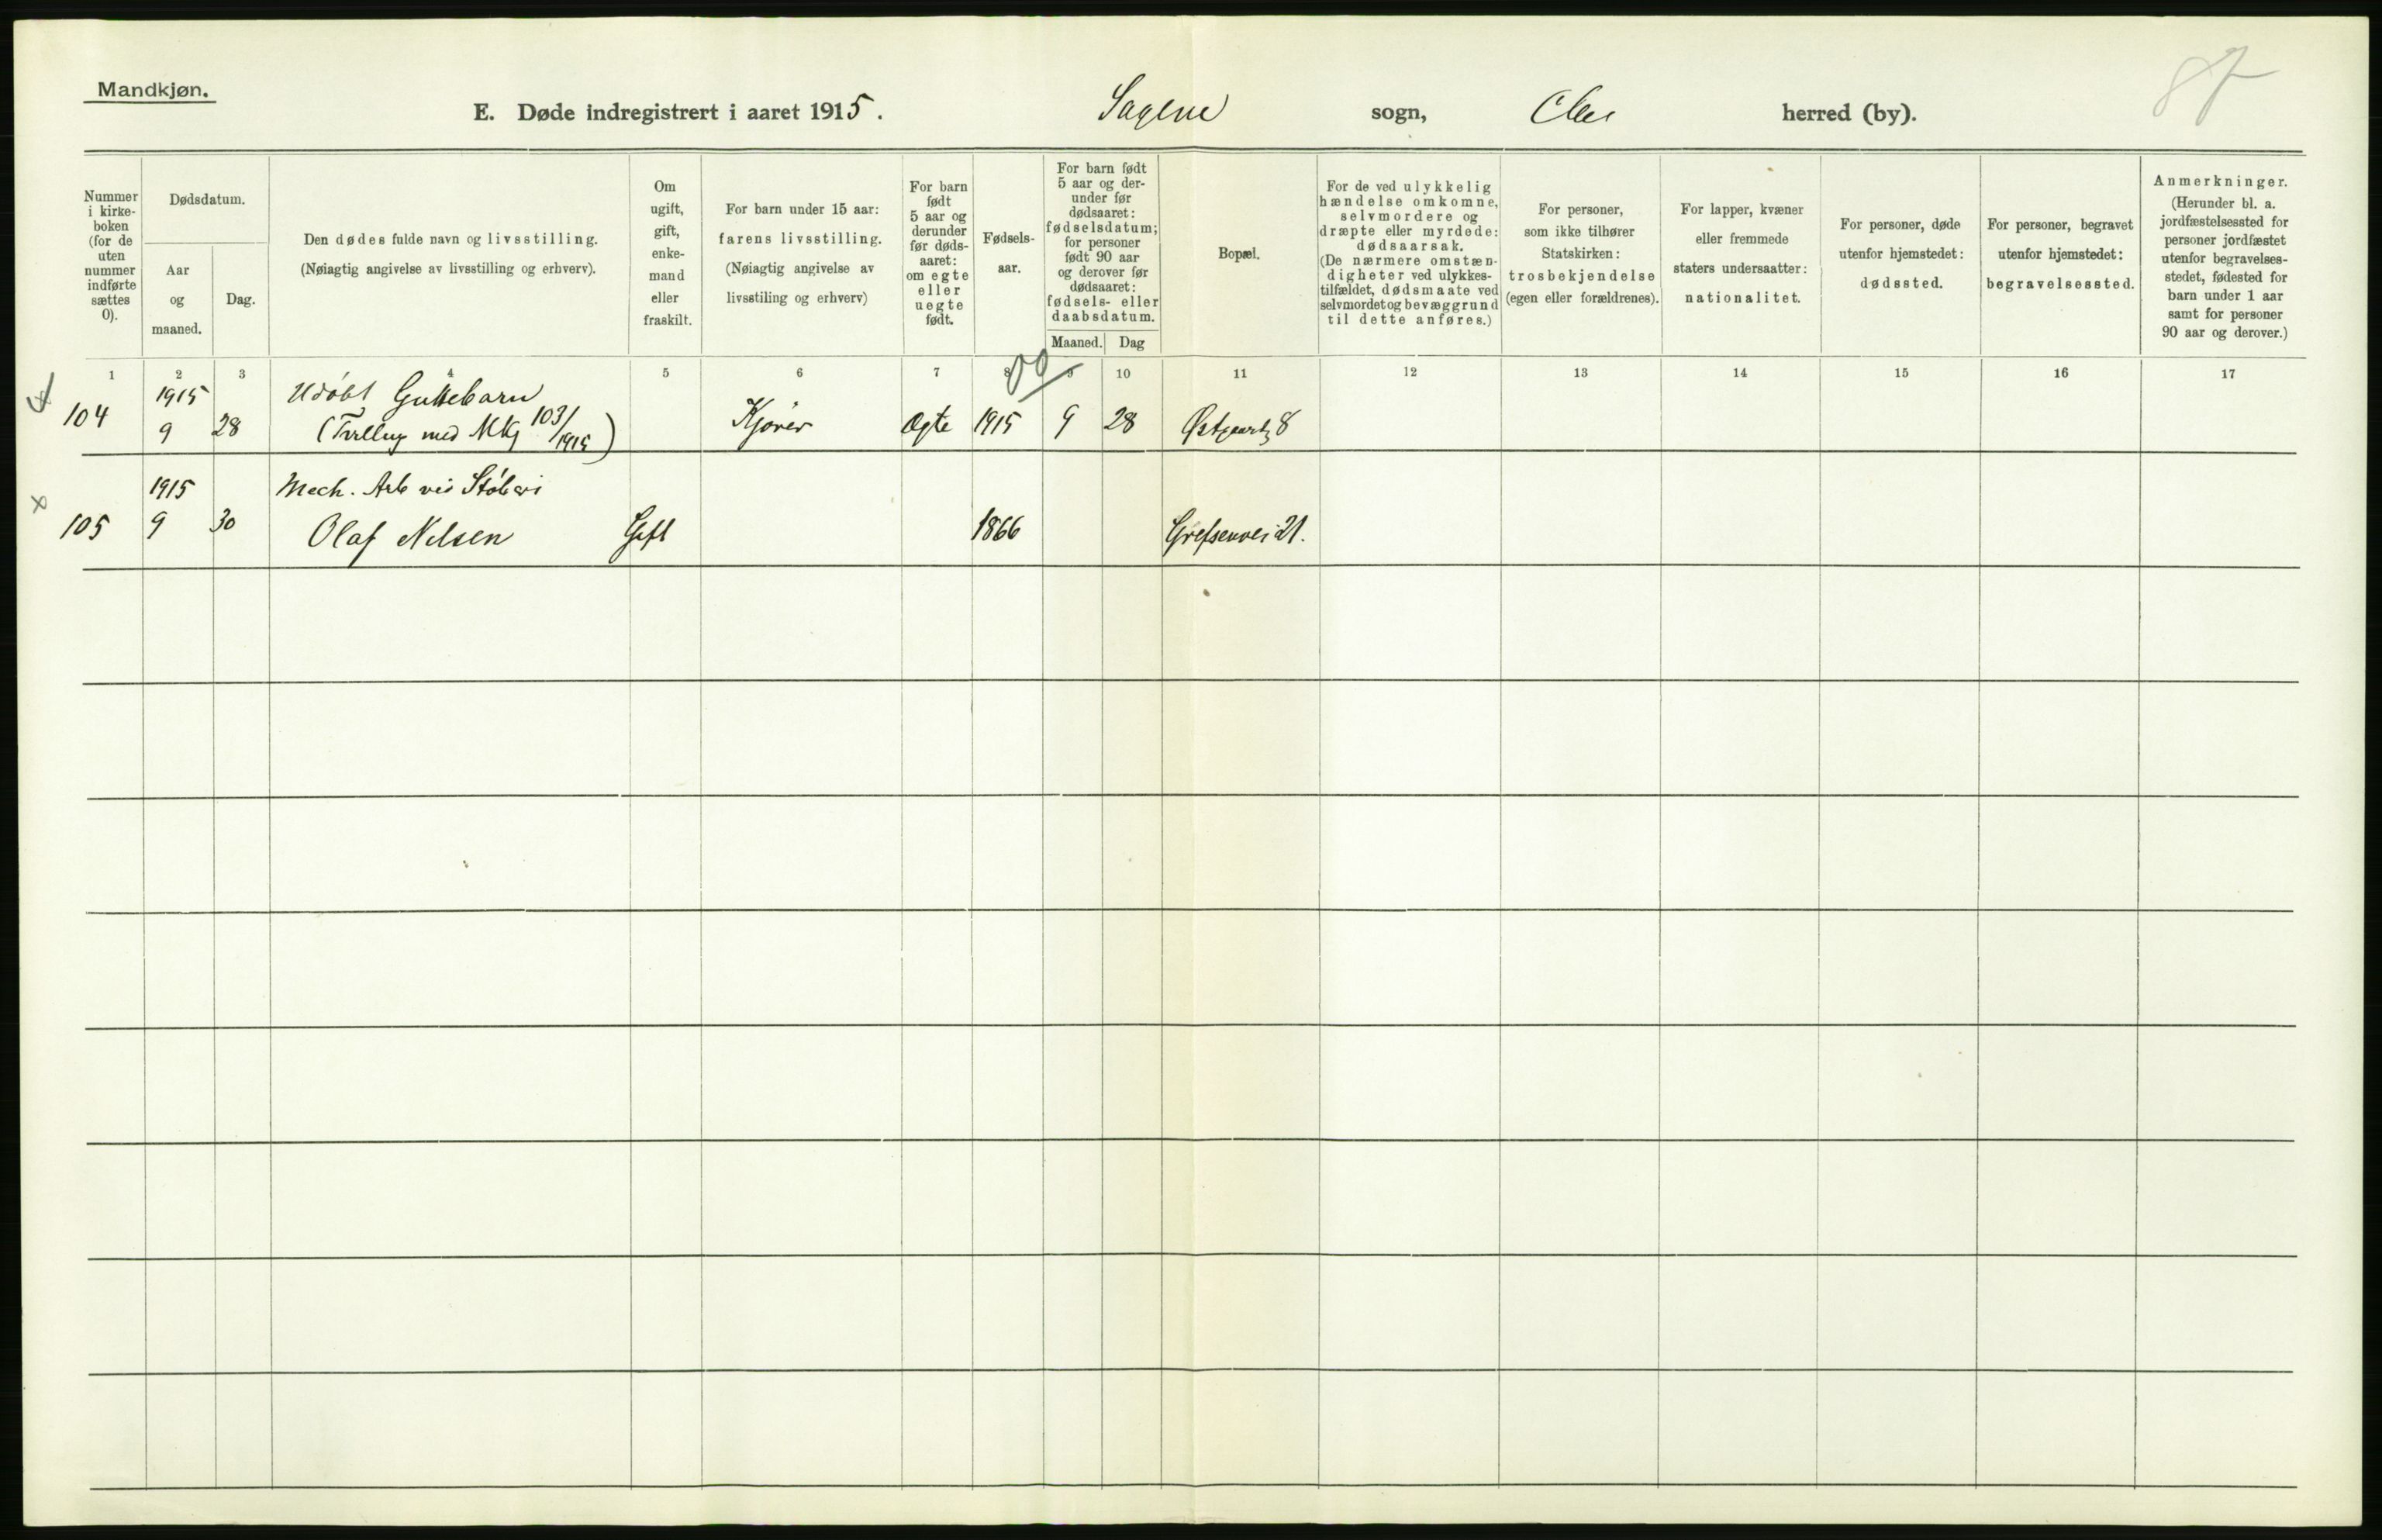 Mandkjøn.
E. Døde indregistrert i aaret 1915. Sagene sogn, herred (by).
Nummer i kirke- boken (for de uten nummer indførte sættes 0).
Dødsdatum.
Aar og maaned.
Dag.
Den dødes fulde navn og livsstilling.
(Nøiagtig angivelse av livsstilling og erhverv).
Om ugift, gift, enke- mand eller fraskilt.
For barn under 15 aar:
farens livsstilling.
(Nøiagtig angivelse av
livsstiling og erhverv)
For barn født 5 aar og derunder før døds- aaret: om egte eller uegte født.
Fødsels- aar.
For barn født 5 aar og der- under før dødsaaret: fødselsdatum; for personer født 90 aar og derover før dødsaaret: fødsels- eller daabsdatum.
Maaned. Dag
Bopæl.
For de ved ulykkelig hændelse omkomne, selvmordere og dræpte eller myrdede: dødsaarsak. (De nærmere omstæn- digheter ved ulykkes- tilfældet, dødsmaate ved selvmordet og bevæggrund til dette anføres.)
For personer, som ikke tilhører Statskirken: trosbekjendelse (egen eller forældrenes).
For lapper, kvæner eller fremmede staters undersaatter: nationalitet.
For personer, døde utenfor hjemstedet: dødssted.
For personer, begravet utenfor hjemstedet: begravelsessted.
Anmerkninger. (Herunder bl. a. jordfæstelsessted for personer jordfæstet utenfor begravelses- stedet, fødested for barn under 1 aar samt for personer 90 aar og derover.)
1 2 3 4 5 6 7 8 9 10 11 12 13 14 15 16 17
1915 Udøbt Guttebarn
104 9 28 (Tvilling med MKj 103/1915) Kjører Egte 1915 9 28 8
1915 Mech. Arb ved Støberi
105 9 30 Olaf Nilsen Gift 1866 Grefsenvei 21.